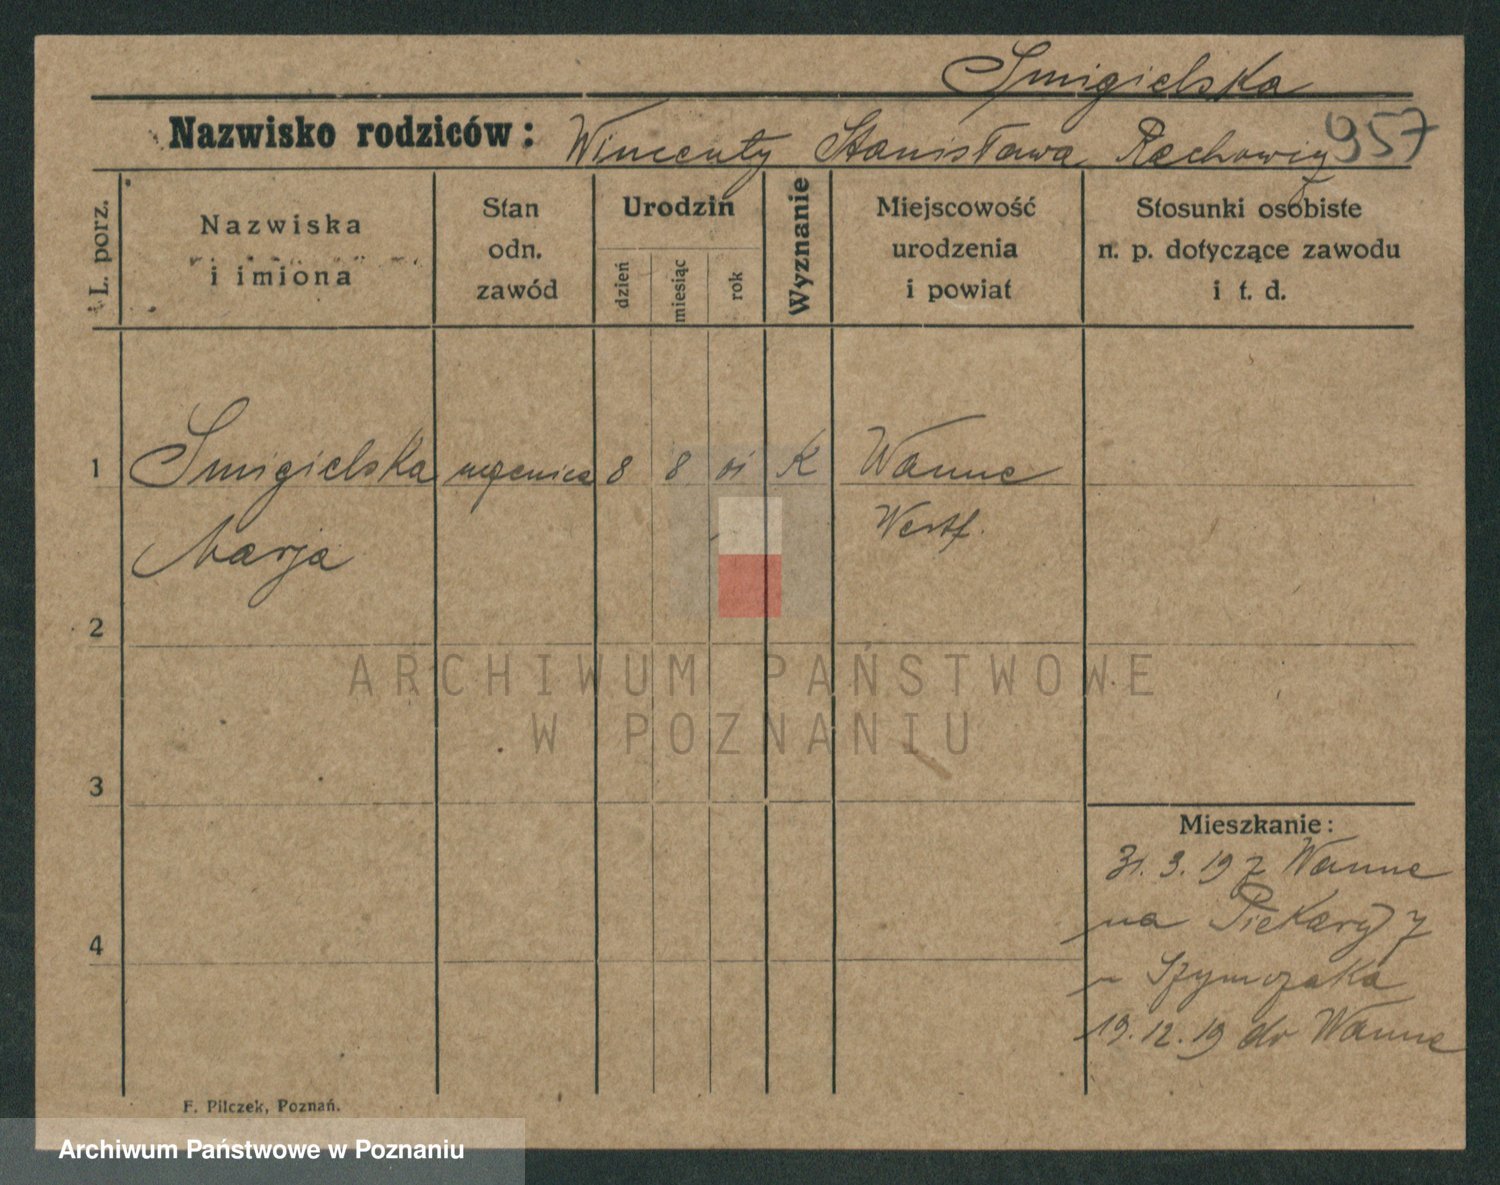 Smigielska
Nazwisko rodziców: Wincenty Stanisława Rachowicz 957
L. porz.
Nazwiska
i imiona
Stan
odn.
zawód
Urodziń
dzień
miesiąc
rok
Wyznanie
Miejscowość
urodzenia
i powiat
Stosunki osobiste
n. p. dotyczące zawodu
i t. d.
1 Smigielska 8 8 01 K Wanne
Marja Westf.
2
3
4
Mieszkanie:
31. 3. 19 z Wanne
na Piekary 7
Szymczaka
19. 12. 19 do Wanne
F. Pilczek, Poznań.
ARCHIWUM PAŃSTWOWE
W POZNANIU
Archiwum Państwowe w Poznaniu